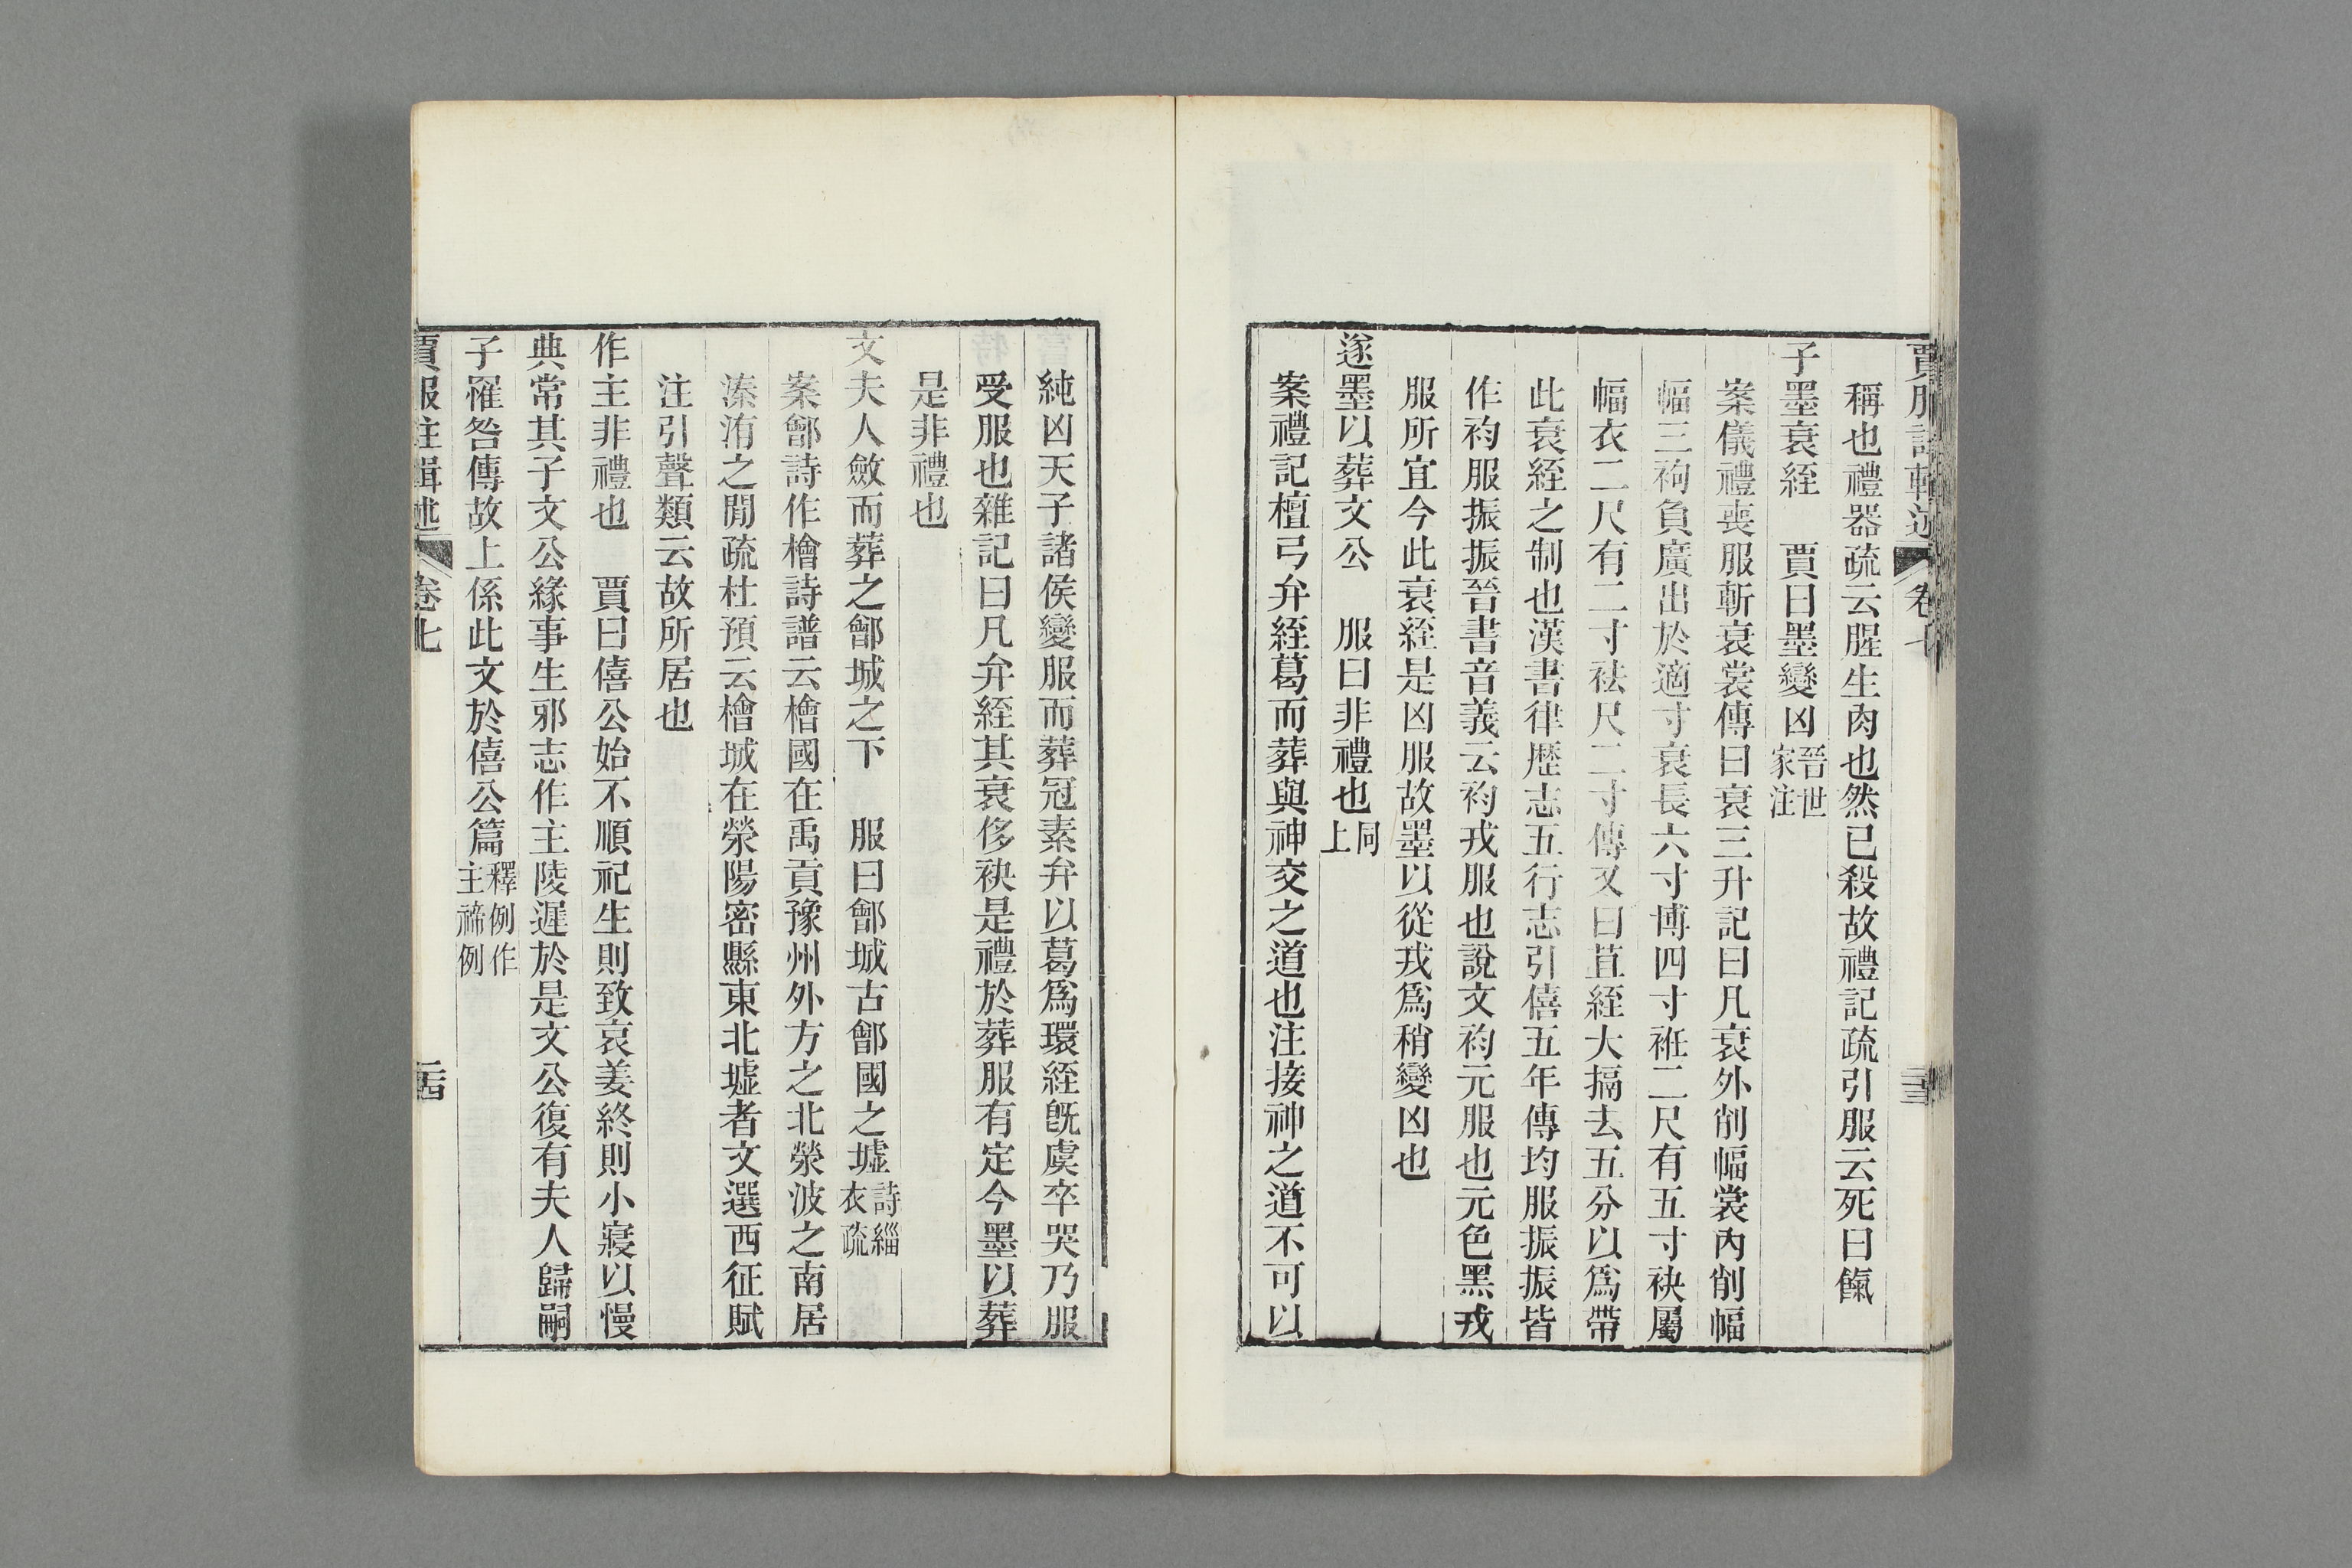 賈服注輯述 卷七
稱也禮器疏云腥生肉也然已殺故禮記疏引服云死曰餼
子墨衰絰 賈曰墨變凶晉世家注
案儀禮喪服斬衰裳傳曰衰三升記曰凡衰外削幅裳內削幅
幅三袧負廣出於適寸衰長六寸博四寸衽二尺有五寸袂屬
幅衣二尺有二寸袪尺二寸傳又曰苴絰大搹去五分以爲帶
此衰絰之制也漢書律歷志五行志引僖五年傳均服振振皆
作袀服振振晉書音義云袀戎服也說文袀元服也元色黑戎
服所宜今此衰絰是凶服故墨以從戎爲稍變凶也
遂墨以葬文公 服曰非禮也同上
案禮記檀弓弁絰葛而葬與神交之道也注接神之道不可以
純凶天子諸侯變服而葬冠素弁以葛爲環絰旣虞卒哭乃服
受服也雜記曰凡弁絰其衰侈袂是禮於葬服有定今墨以葬
是非禮也
文夫人斂而葬之鄶城之下 服曰鄶城古鄶國之墟詩緇衣疏
案鄶詩作檜詩譜云檜國在禹貢豫州外方之北滎波之南居
溱洧之閒疏杜預云檜城在滎陽密縣東北墟者文選西征賦
注引聲類云故所居也
作主非禮也 賈曰僖公始不順祀生則致哀姜終則小寢以慢
典常其子文公緣事生邪志作主陵遲於是文公復有夫人歸嗣
子罹咎傳故上係此文於僖公篇釋例作主禘例
賈服注輯述 卷七 二十四